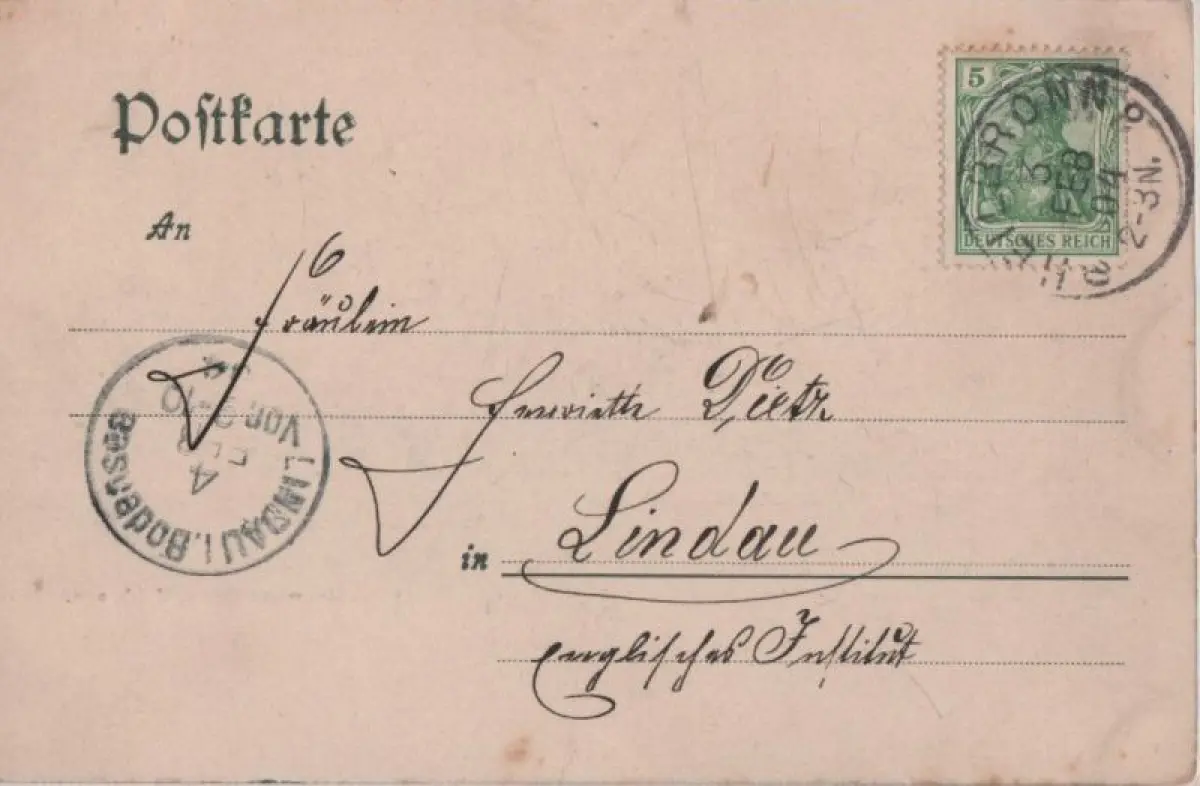 Postkarte
5
DEUTSCHES REICH
HEILBRONN
3
FEB
04
2-3N.
An
Fräulein
Henriette Dietz
in Lindau
englisches Institut
LINDAU i. Bodensee
4
FEB
Vor. 9-10